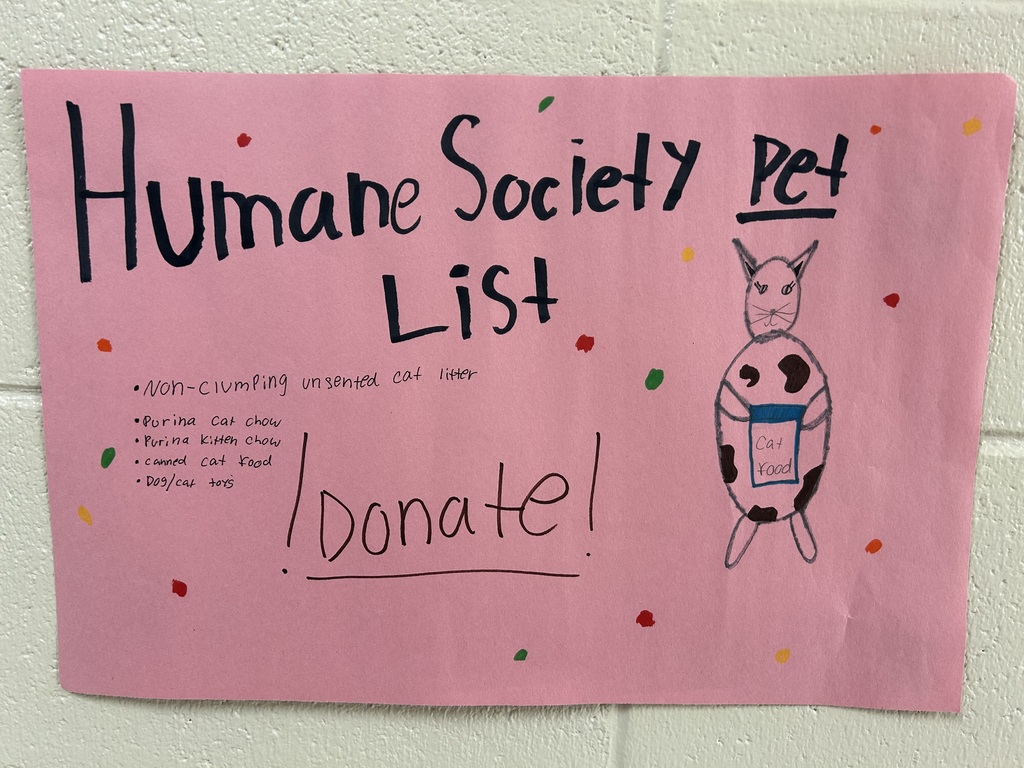 Humane Society Pet
List
• Non-clumping unsented cat litter
• Purina cat chow
• Purina Kitten chow
• canned cat food
• Dog/cat toys
! Donate !
Cat
food